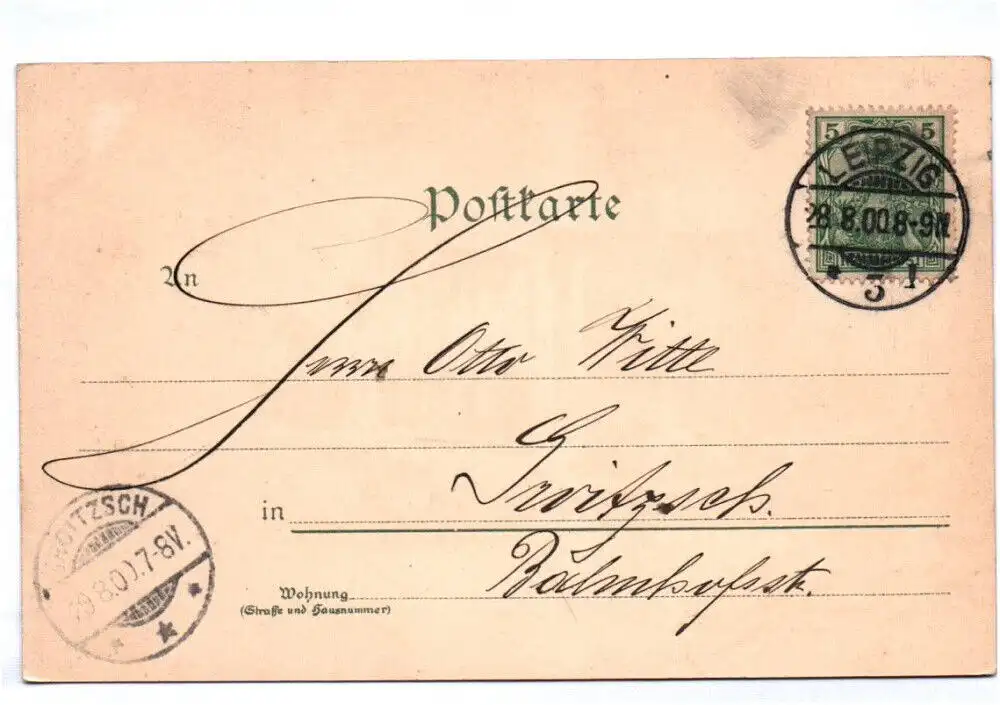 5 5
LEIPZIG
28.8.00.8-9N
* 3 1
Postkarte
An
Herrn Otto Witte
in Groitzsch.
Wohnung Bahnhofstr.
(Straße und Hausnummer)
GROITZSCH
29.8.00.7-8V.